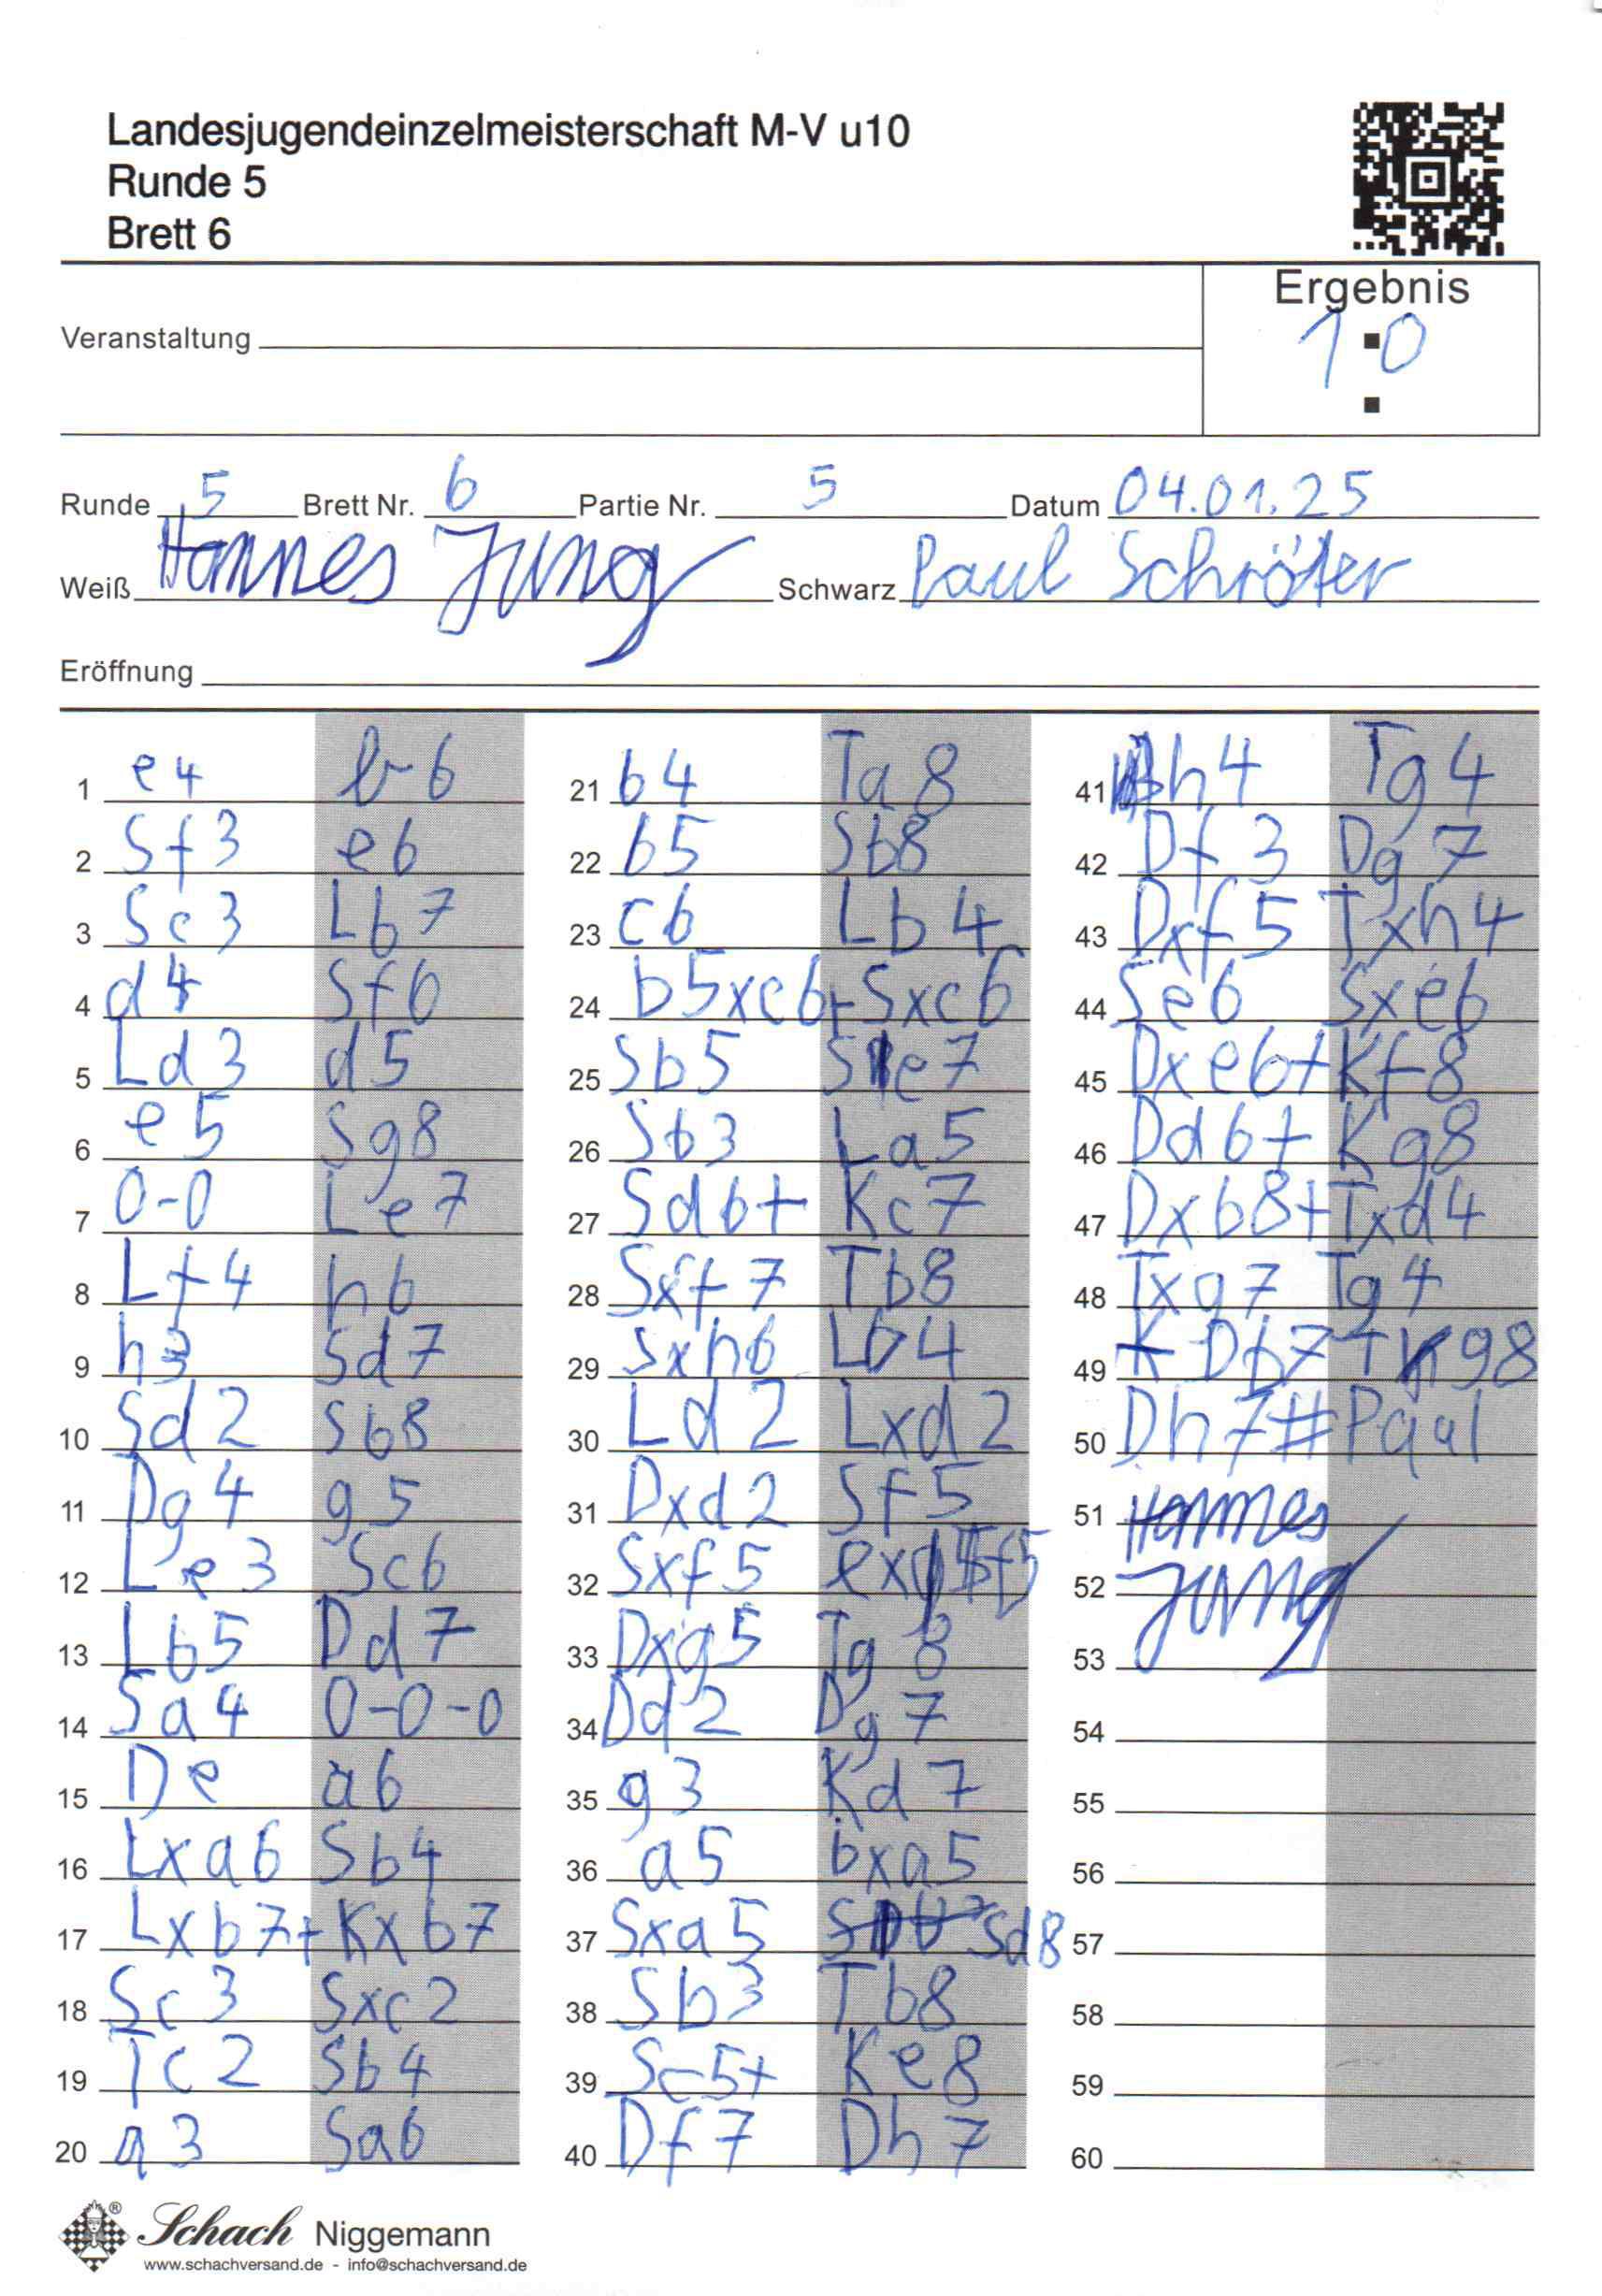 Landesjugendeinzelmeisterschaft M-V u10
Runde 5
Brett 6
Ergebnis
1:0
:
Veranstaltung
Runde 5 Brett Nr. 6 Partie Nr. 5 Datum 04.01.25
Weiß Hannes Jung Schwarz Paul Schröter
Eröffnung
1 e4 b6
2 Sf3 e6
3 Sc3 Lb7
4 d4 Sf6
5 Ld3 d5
6 e5 Sg8
7 0-0 Le7
8 Lf4 h6
9 h3 Sd7
10 Sd2 Sb8
11 Dg4 g5
12 Le3 Sc6
13 Lb5 Dd7
14 Sa4 0-0-0
15 De a6
16 Lxa6 Sb4
17 Lxb7+ Kxb7
18 Sc3 Sxc2
19 Tc2 Sb4
20 a3 Sa6
21 b4 Ta8
22 b5 Sb8
23 c6 Lb4
24 b5xc6+ Sxc6
25 Sb5 Se7
26 Sb3 La5
27 Sd6+ Kc7
28 Sxf7 Tb8
29 Sxh6 Lb4
30 Ld2 Lxd2
31 Dxd2 Sf5
32 Sxf5 exf5
33 Dxg5 Tg8
34 Dd2 Dg7
35 g3 Kd7
36 a5 bxa5
37 Sxa5 Sd8
38 Sb3 Tb8
39 Sc5+ Ke8
40 Df7 Dh7
41 h4 Tg4
42 Df3 Dg7
43 Dxf5 Txh4
44 Se6 Sxe6
45 Dxe6+ Kf8
46 Dd6+ Kg8
47 Dxb8+ Txd4
48 Txg7 Tg4
49 Db7+ Kg8
50 Dh7# Paul
51 Hannes
52 Jung
53
54
55
56
57
58
59
60
Schach Niggemann
www.schachversand.de - info@schachversand.de